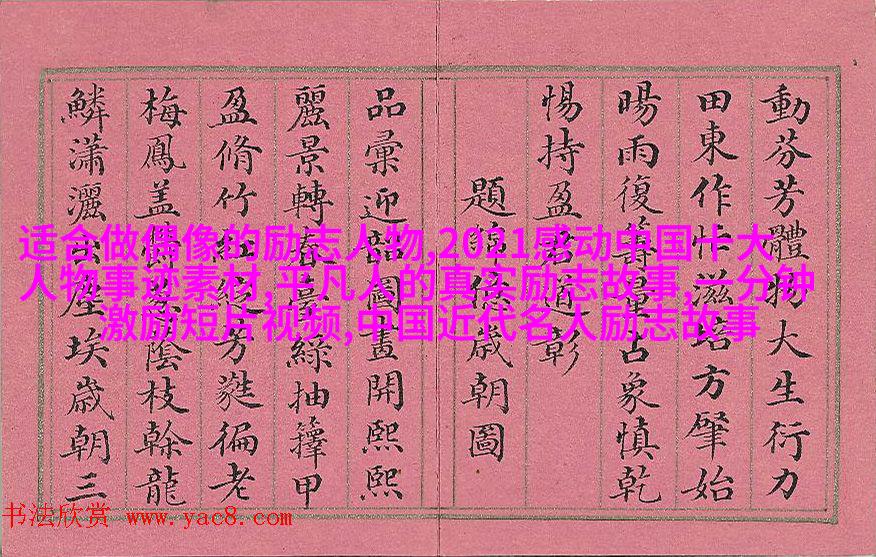 動芬芳體物大生衍力
田東作忙滋培方肇始
暘雨復量占象慎乾
惕持盈君道彰
題歲朝圖
品彙迎韶圖畫開熙熙
麗景轉春臺綠抽籜甲
盈脩竹紅綻芳蕤徧老
梅鳳蓋陰枝榦龍
鱗瀟灑出塵埃歲朝三
适合做偶像的励志人物,2021感动中国十大
人物事迹素材,平凡人的真实励志故事,一分钟
激励短片视频,中国近代名人励志故事
书法欣赏 www.yac8.com